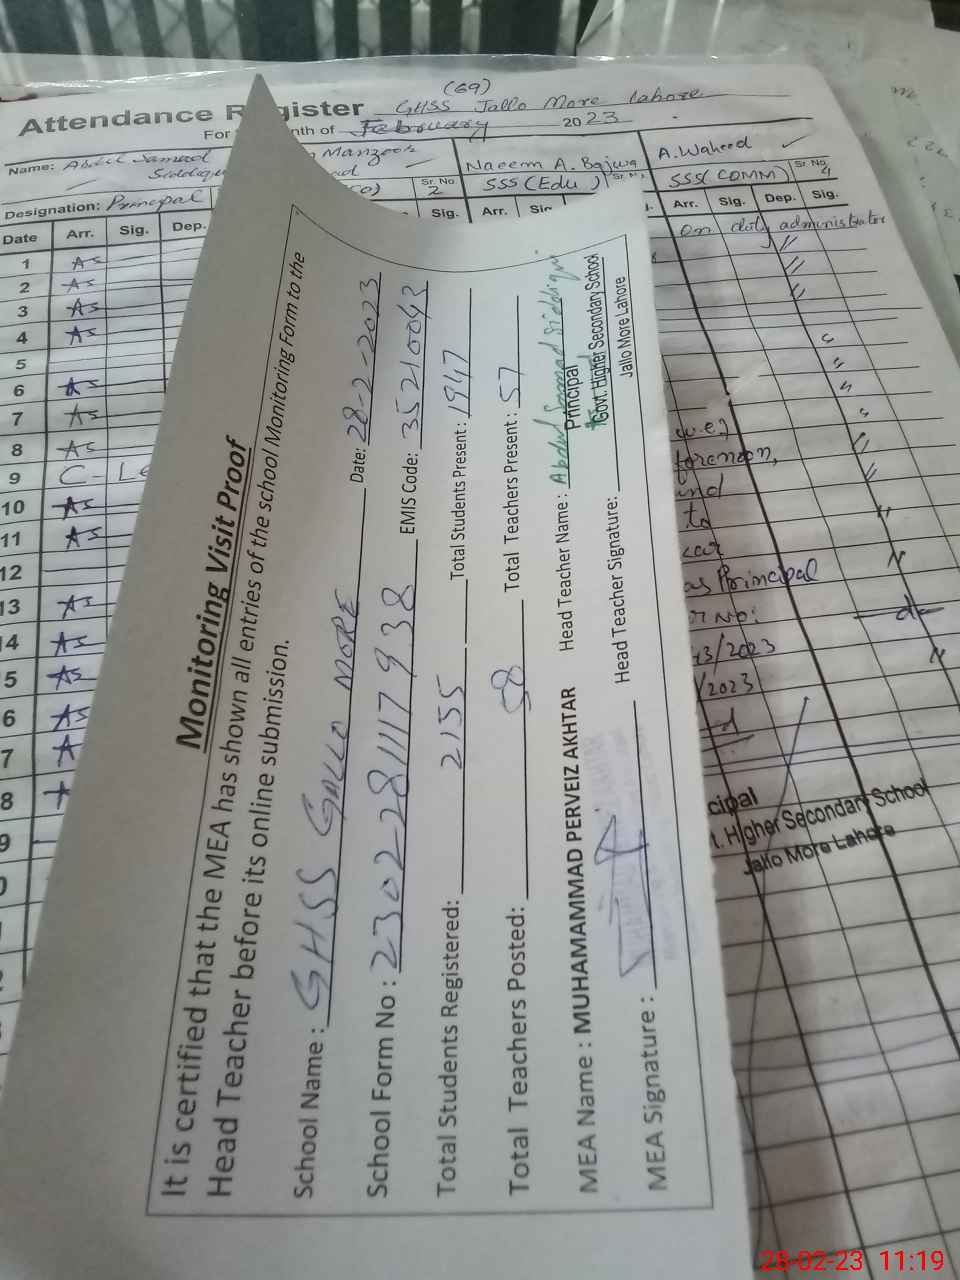 (69)
Attendance Register GHSS Jallo More Lahore
For nth of February 2023
Name: Abdul Samad Manzoor Naeem A. Bajwa A. Waheed
Siddiqu
Designation: Principal Sr. No. 2 SSS (Edu) SSS (COMM) Sr. No. 4
Date Arr. Sig. Dep. Sig. Arr. Arr. Sig. Dep. Sig.
on duty administrator
1 As
2 As
3 As
4 As
5
6 As
7 As
8 As
9 C- Le
10 As
11 As
12
13 As
4 As
5 As
6 As
7 A
8
9
0
w.e.f
forenoon,
and
to
as Principal
r No:
/2023
/2023
cipal
. Higher Secondary School
Jallo More Lahore
Monitoring Visit Proof
It is certified that the MEA has shown all entries of the school Monitoring Form to the
Head Teacher before its online submission.
School Name : GHSS GALLO MORE Date: 28-2-2023
School Form No : 2302-281117938 EMIS Code: 35210043
Total Students Registered: 2155 Total Students Present : 1947
Total Teachers Posted: 58 Total Teachers Present : 57
MEA Name : MUHAMAMMAD PERVEIZ AKHTAR Head Teacher Name : Abdul Samad Siddiqui
MEA Signature : Head Teacher Signature:
Principal
Govt. Higher Secondary School
Jallo More Lahore
28-02-23 11:19